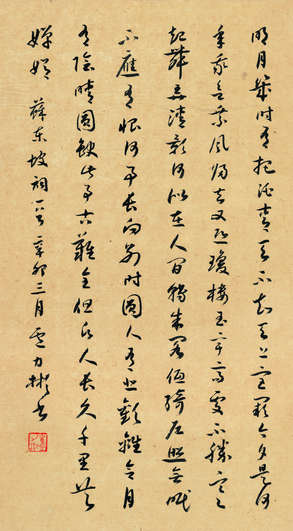 明月幾時有把酒問青天不知天上宮闕今夕是何
年我欲乘風歸去又恐瓊樓玉宇高處不勝寒
起舞弄清影何似在人間轉朱閣低綺户照無眠
不應有恨何事長向别時圓人有悲歡離合月
有陰晴圓缺此事古難全但願人長久千里共
嬋娟 蘇東坡詞一首 辛卯三月 力彬书